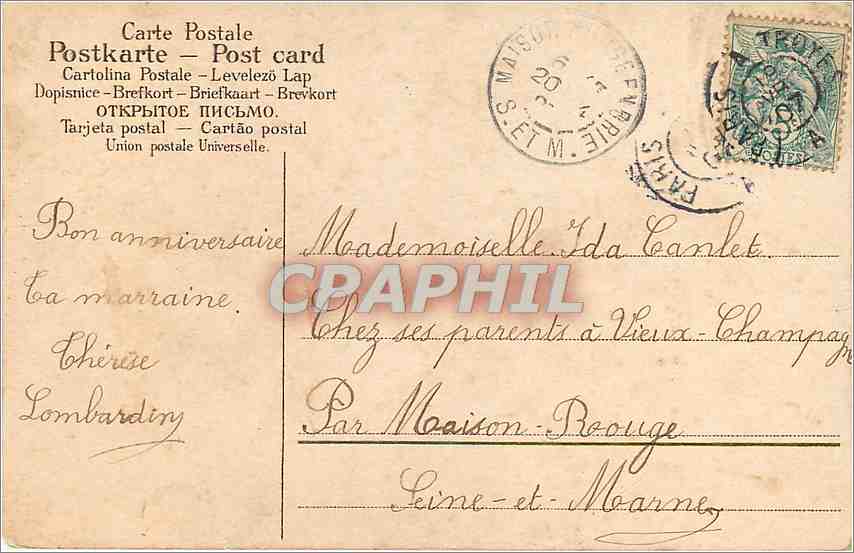 Carte Postale
Postkarte — Post card
Cartolina Postale – Levelezö Lap
Dopisnice – Brefkort – Briefkaart – Brevkort
ОТКРЫТОЕ ПИСЬМО.
Tarjeta postal — Cartão postal
Union postale Universelle.
MAISON-ROUGE EN BRIE
20
S. ET M.
PARIS
PARIS A TROYES
Bon anniversaire
Ta marraine.
Thérèse
Lombardin
Mademoiselle Ida Canlet.
Chez ses parents à Vieux-Champagne
Par Maison-Rouge
Seine-et-Marne
CPAPHIL